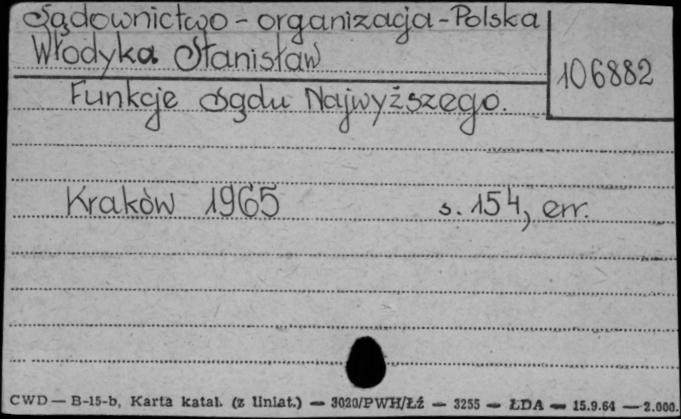 Sądownictwo - organizacja - Polska
Włodyka Stanisław
106882
Funkcje Sądu Najwyższego.
Kraków 1965 s. 154, err.
CWD — B-15-b, Karta katal. (z liniat.) — 3020/PWH/Łź — 3255 — ŁDA — 15.9.64 — 2.000.